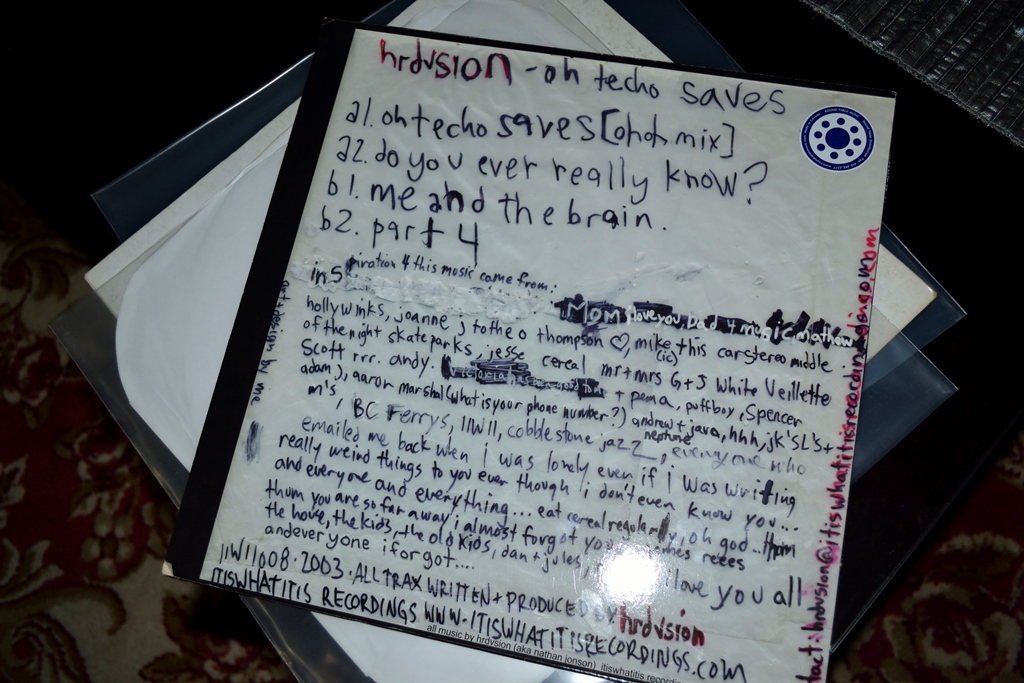 hrdvsion - oh techo saves
a1. oh techo saves [ohoh mix]
a2. do you ever really know?
b1. me and the brain.
b2. part 4
inspiration 4 this music came from:
Mom love you
hollywinks, joanne j to the o thompson ♡, mike, this car stereo middle
of the night skate parks, jesse cereal mr + mrs G + J White Veillette
Scott rrr. andy. + pema, puffboy, Spencer
adam J, aaron marshal (what is your phone number?) andrew + java, hhh, jk's L's +
m's, BC Ferrys, IIWII, cobblestone jazz, neptune, everyone who
emailed me back when i was lonely even if i was writing
really weird things to you even though i don't even know you...
and everyone and everything... eat cereal regularly, oh god.. tham
thum you are so far away i almost forgot you, reees
the hove, the kids, the old kids, dan + jules love you all
and everyone i forgot....
IIWII008 · 2003 · ALL TRAX WRITTEN + PRODUCED BY hrdvsion
ITISWHATITIS RECORDINGS WWW.ITISWHATITISRECORDINGS.COM
all music by hrdvsion (aka nathan jonson) itiswhatitis
art + design by me
tact: hrdvsion@itiswhatitisrecordings.com